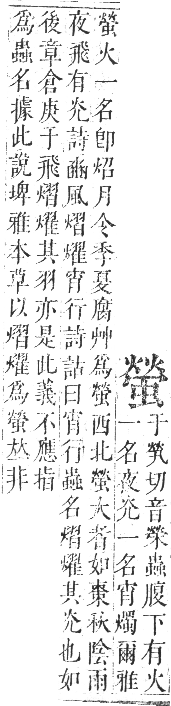 螢
于煢切音榮蟲腹下有火
一名夜光一名宵燭爾雅
螢火一名卽炤月令季夏腐艸爲螢西北螢大者如棗秋陰雨
夜飛有光詩豳風熠燿宵行詩詁曰宵行蟲名熠燿其光也如
後章倉庚于飛熠燿其羽亦是此義不應指
爲蟲名據此說埤雅本草以熠燿爲螢𠀤非